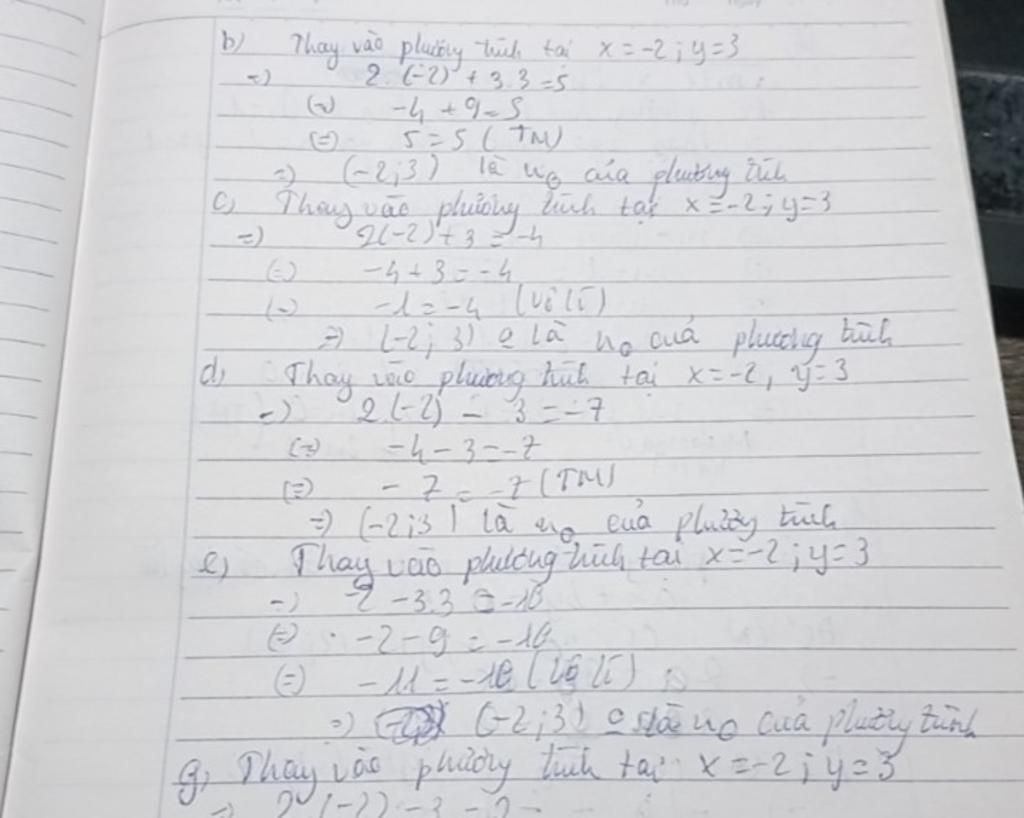 b) Thay vào phương trình tại x = -2 ; y = 3
=) 2.(-2) + 3.3 = 5
(=) -4 + 9 = 5
(=) 5 = 5 (TM)
=) (-2;3) là no của phương trình
c) Thay vào phương trình tại x = -2 ; y = 3
=) 2(-2) + 3 = -4
(=) -4 + 3 = -4
(=) -1 = -4 (Vô lí)
=) (-2; 3) o là no của phương trình
d) Thay vào phương trình tại x = -2, y = 3
=) 2.(-2) - 3 = -7
(=) -4 - 3 = -7
(=) -7 = -7 (TM)
=) (-2;3) là no của phương trình
e) Thay vào phương trình tại x = -2 ; y = 3
=) -2 - 3.3 = -10
(=) -2 - 9 = -10
(=) -11 = -10 (Vô lí)
=) (-2;3) o là no của phương trình
g) Thay vào phương trình tại x = -2 ; y = 3